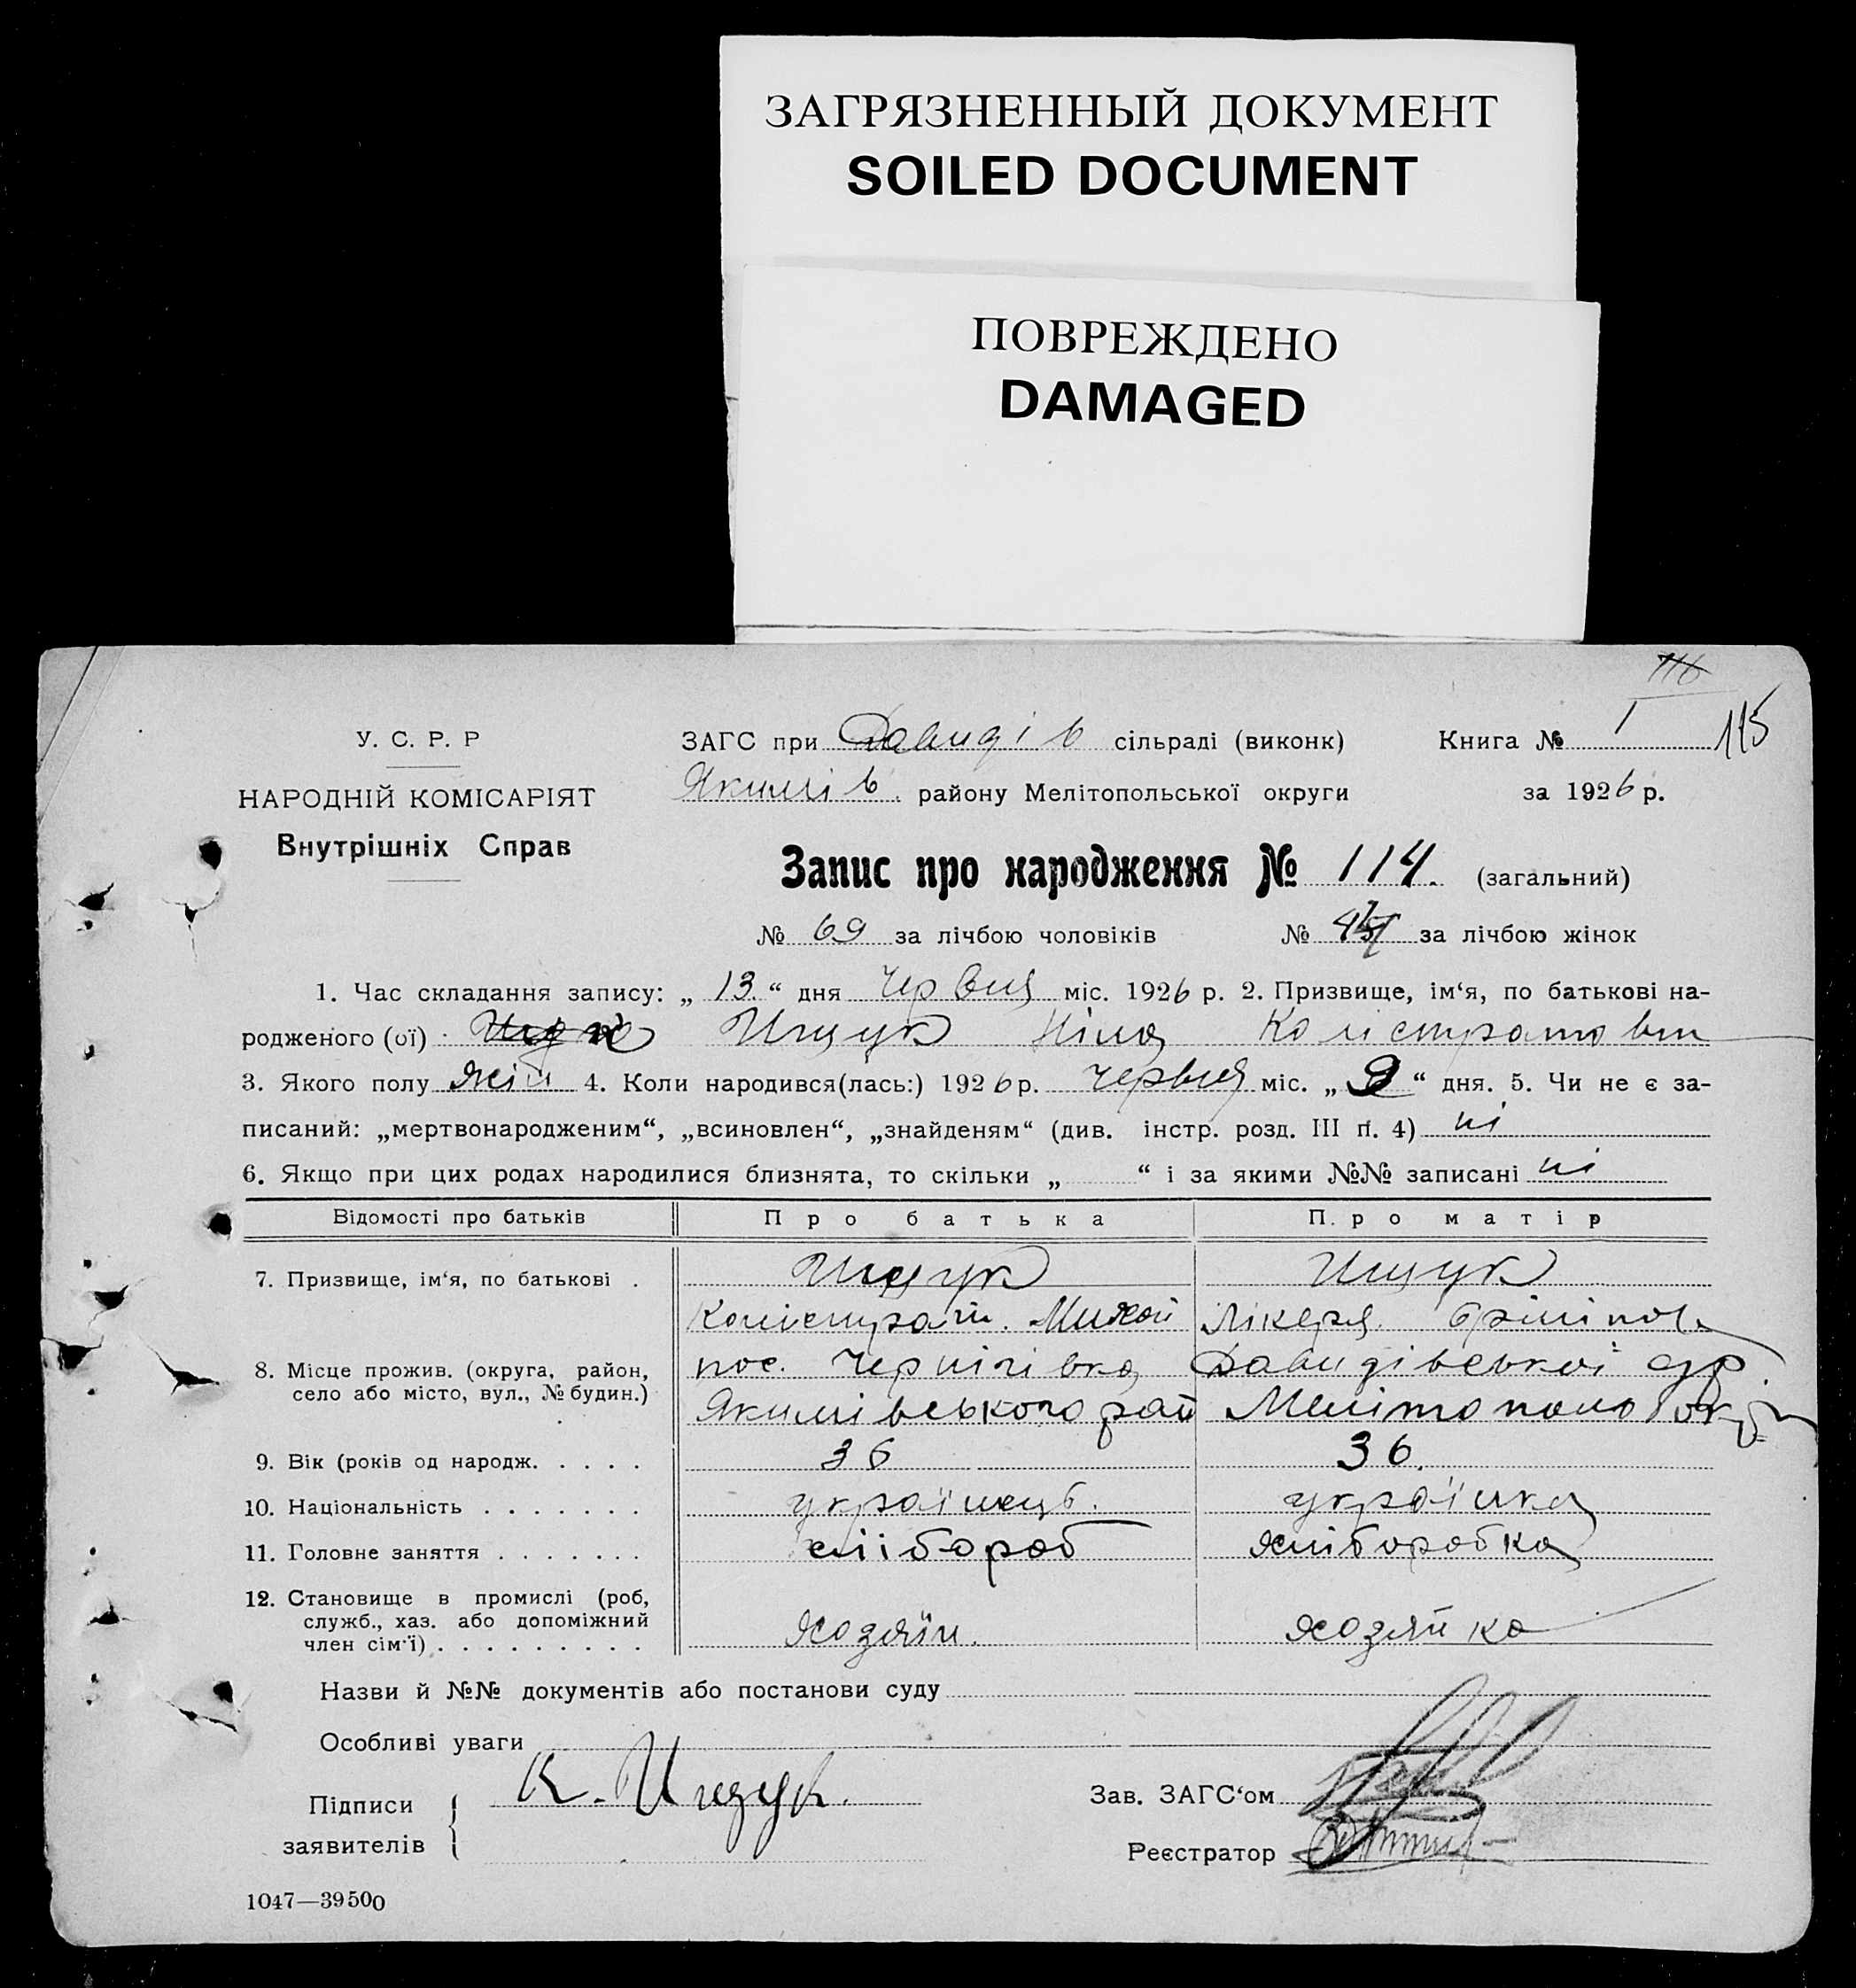 ЗАГРЯЗНЕННЫЙ ДОКУМЕНТ
SOILED DOCUMENT
ПОВРЕЖДЕНО
DAMAGED
116
У. С. Р. Р
ЗАГС при Давидів сільраді (виконк) Книга № 1 115
НАРОДНІЙ КОМІСАРІЯТ
Якимів. району Мелітопольської округи за 1926 р.
Внутрішніх Справ
Запис про народження № 114. (загальний)
№ 69 за лічбою чоловіків № за лічбою жінок
1. Час складання запису: „ 13. “ дня Червня міс. 1926 р. 2. Призвище, ім‘я, по батькові на-
родженого (ої) Ищук Ніна Колістратовн
3. Якого полу жін 4. Коли народився(лась:) 1926 р. червня міс. „ 9 “ дня. 5. Чи не є за-
писаний: „мертвонародженим“, „всиновлен“, „знайденям“ (див. інстр. розд. III п. 4) ні
6. Якщо при цих родах народилися близнята, то скільки „ “ і за якими №№ записані ні
Відомості про батьків Про батька Про матір
7. Призвище, ім‘я, по батькові . Ищук Ищук
Колістрат. Михай Лікеря
8. Місце прожив. (округа, район, пос. Чернігівка Давидівської
село або місто, вул., № будин.)
Якимівського рай Мелітополь окр
9. Вік (років од народж. . . . . 36 36.
10. Національність . . . . . . . українець. українка
11. Головне заняття . . . . . . . хлібороб хліборобка
12. Становище в промислі (роб,
служб., хаз. або допоміжний
член сім‘ї) . . . . . . . . . Хозяїн. хозяйка
Назви й №№ документів або постанови суду
Особливі уваги
Підписи К. Ищук. Зав. ЗАГС‘ом
заявителів Реєстратор
1047—39500